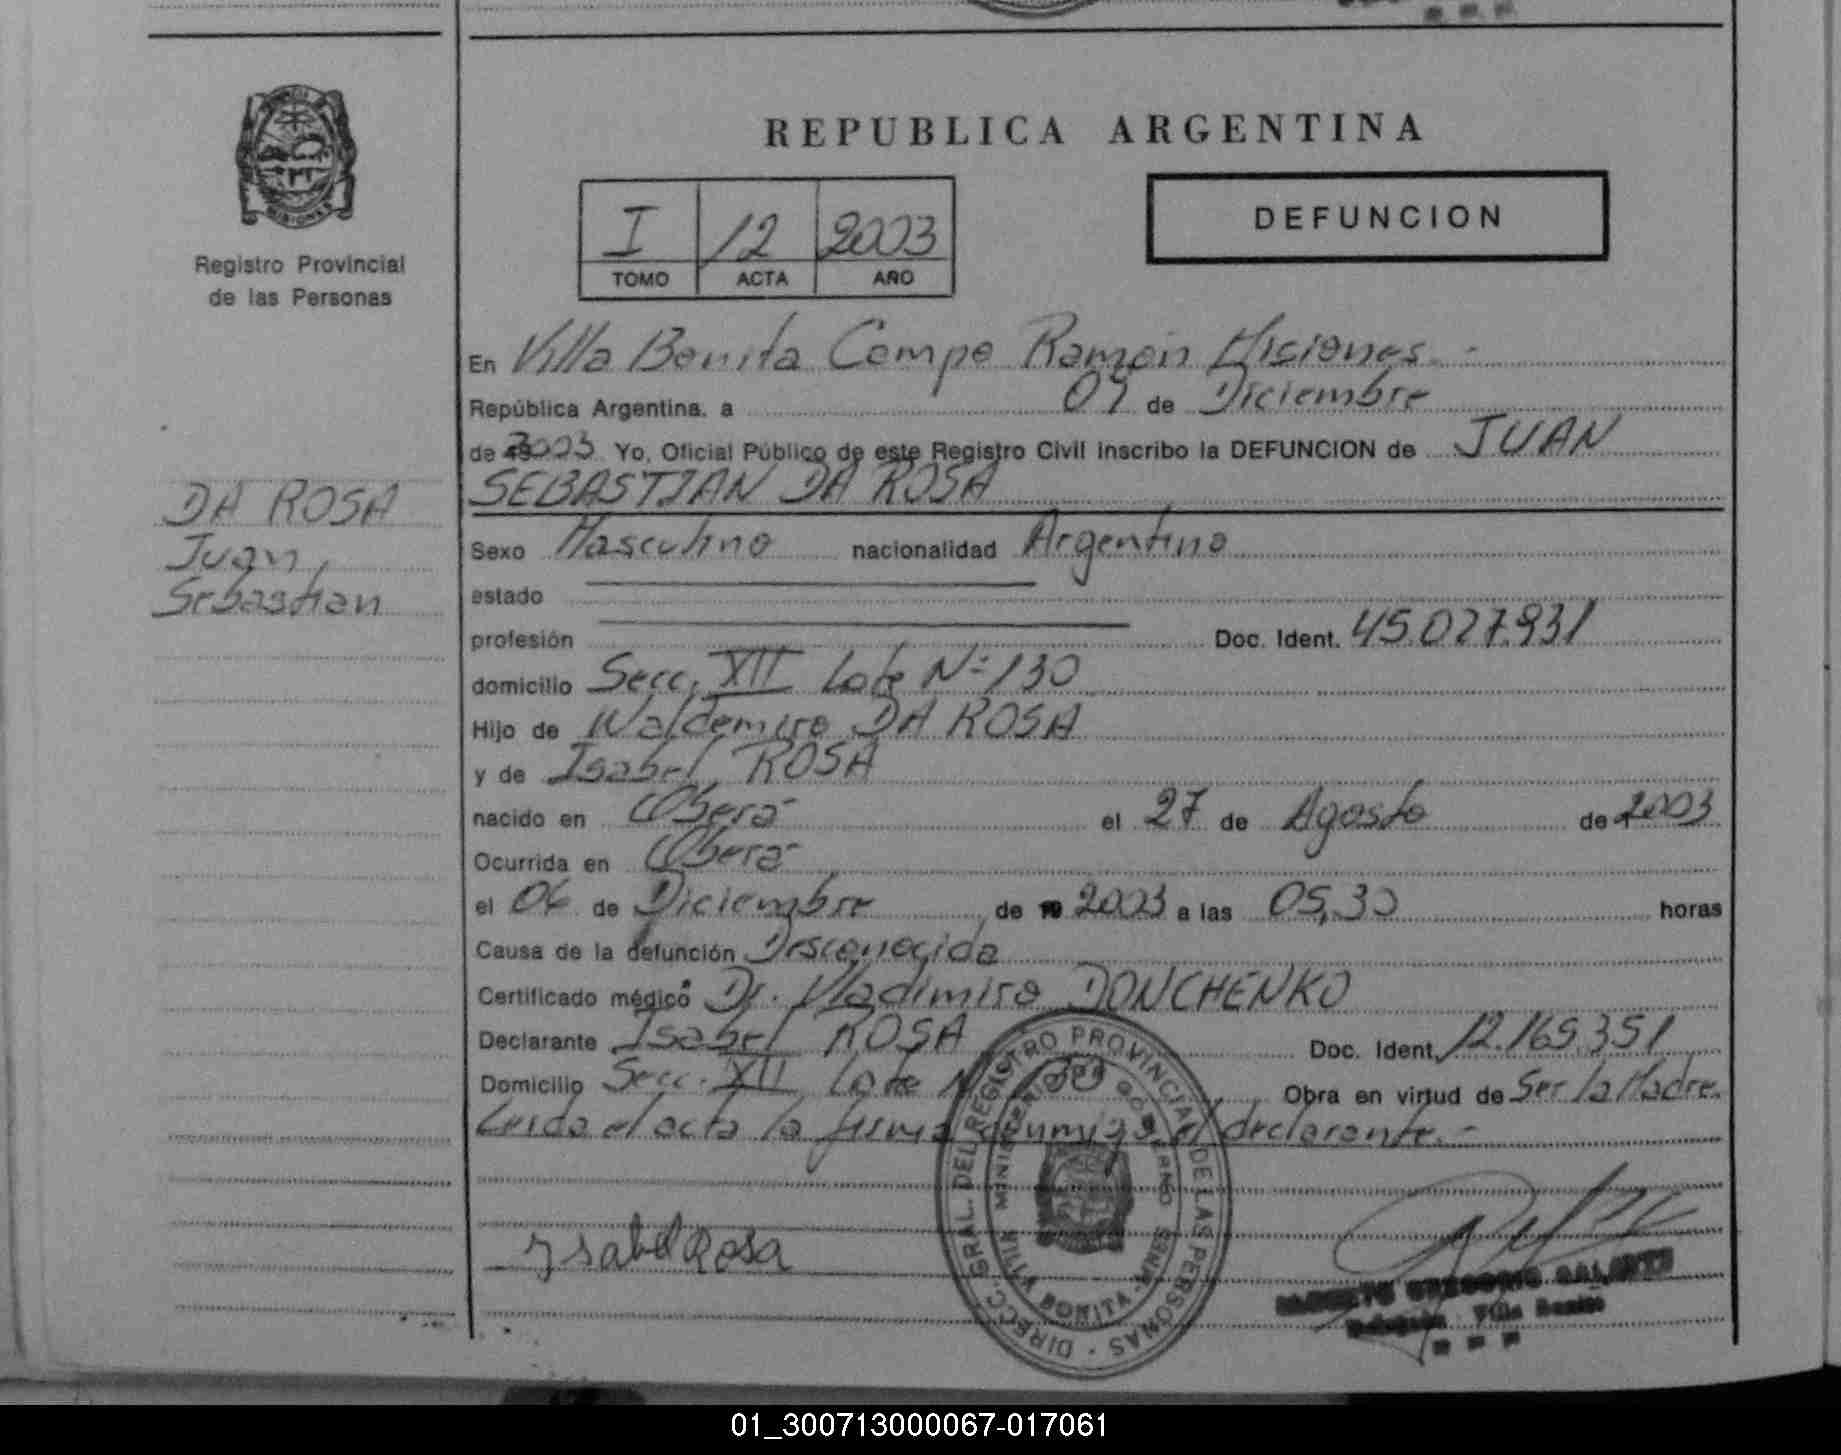 REPUBLICA ARGENTINA
MISIONES
Registro Provincial
de las Personas
I 12 2003
TOMO ACTA AÑO
DEFUNCION
En Villa Bonita Campo Ramón Misiones.-
República Argentina, a 07 de Diciembre
de 2003 Yo, Oficial Público de este Registro Civil inscribo la DEFUNCION de JUAN
SEBASTIAN DA ROSA
DA ROSA
Juan
Sebastian
Sexo Masculino nacionalidad Argentina
estado
profesión Doc. Ident. 45.027.931
domicilio Secc. XII Lote Nº 130
Hijo de Waldemiro DA ROSA
y de Isabel ROSA
nacido en Oberá el 27 de Agosto de 2003
Ocurrida en Oberá
el 06 de Diciembre de 19 2003 a las 05,30 horas
Causa de la defunción Desconocida
Certificado médico Dr. Vladimiro DONCHENKO
Declarante Isabel ROSA Doc. Ident. 12.165.351
Domicilio Secc. XII Lote N 130 Obra en virtud de Ser la Madre.
Leida el acta la firma conmigo el declarante.-
DIRECC. GRAL. DEL REGISTRO PROVINCIAL DE LAS PERSONAS
MINISTERIO DE GOBIERNO
VILLA BONITA
Ysabel Rosa
GREGORIO
Villa Bonita
01_300713000067-017061